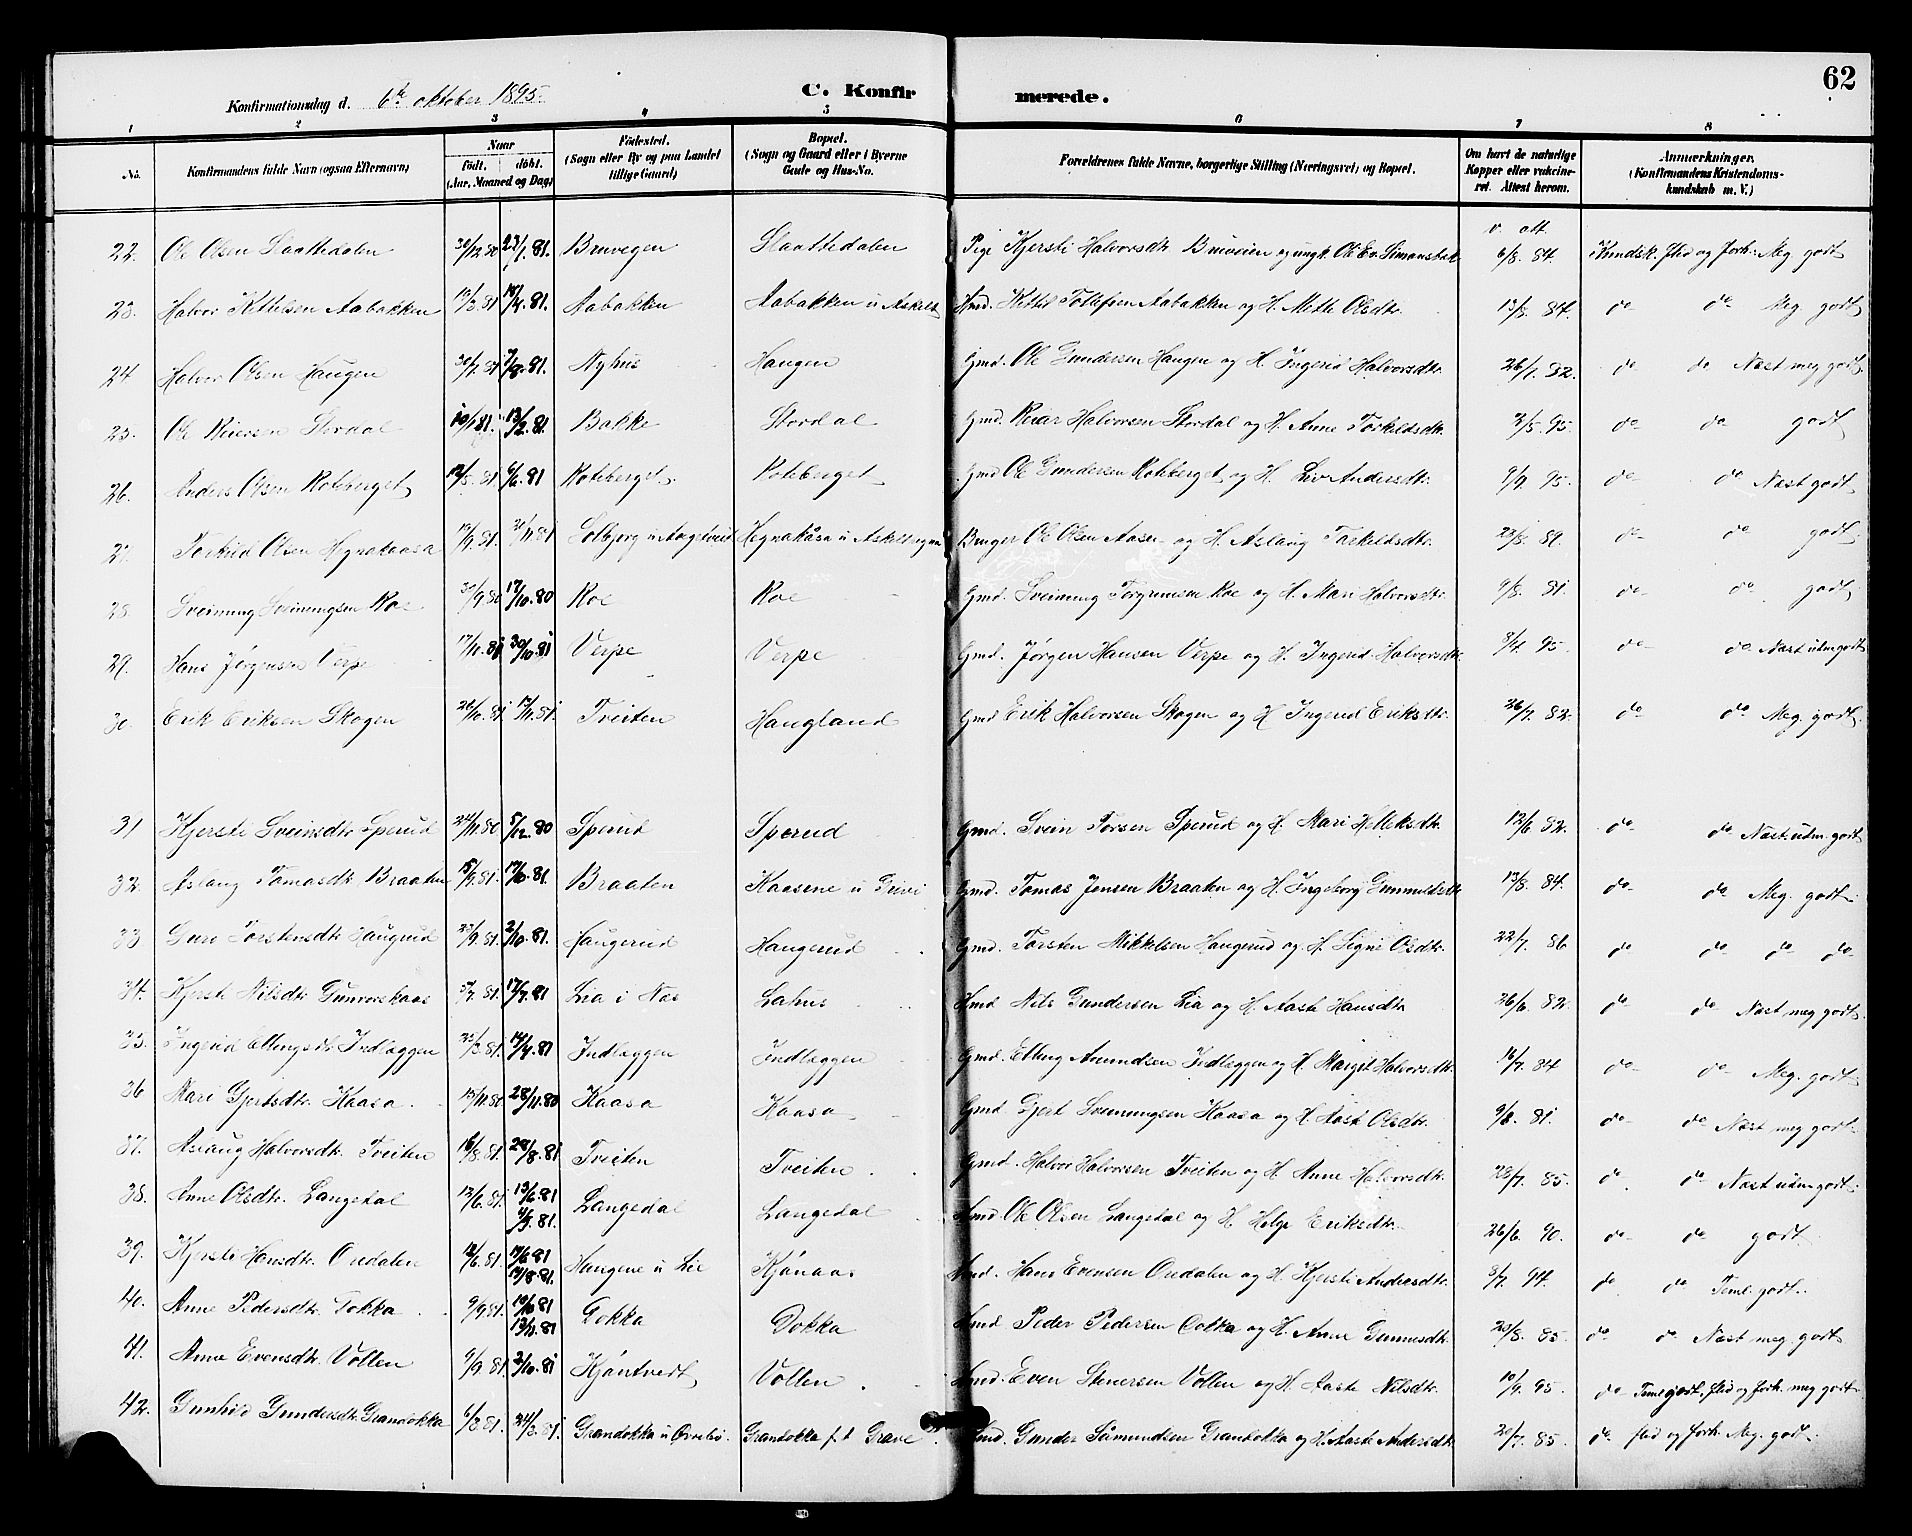 62
Konfirmationsdag d. 6te oktober 1895.
C. Konfirmerede.
1 2 3 4 5 6 7 8
No. Konfirmandens fulde Navn (ogsaa Efternavn) Naar født, døbt. (Aar, Maaned og Dag) Fødested. (Sogn eller By og paa Landet tillige Gaard) Bopæl. (Sogn og Gaard eller i Byerne Gade og Hus-No. Forældrenes fulde Navne, borgerlige Stilling (Næringsvei) og Bopæl. Om havt de naturlige Kopper eller vakcineret. Attest herom. Anmærkninger. (Konfirmandens Kristendomskundskab m. V.)
v. att.
22. Ole Olsen Slaattedalen 30/12 80 23/1. 81. Bruvegen Slaattedalen Pige Kjersti Halvorsdtr. Bruveien og ungk. Ole Ev. Simonsbak 6/8. 84. Kundsk. flid og forh. Meg. godt
23. Halvor Kittilsen Aabakken 12/3 81 18/4. 81. Aabakken Aabakken u Askilt Hmd. Kittil Tollefsen Aabakken og H. Mette Olsdtr. 13/8. 84. do do Meg. godt
24 Halvor Olsen Haugen 30/7. 81 7/8. 81. Nyhus Haugen Gmd. Ole Gundersen Haugen og H. Ingerid Halvorsdtr. 26/7. 82. do do Næst meg godt
25. Ole Reiersen Stordal 10/1 81. 13/2. 81. Bakke Stordal Gmd. Reiar Halvorsen Stordal og H. Anne Torkildsdtr. 2/5. 95. do do godt
26. Anders Olsen Roteberget 12/5. 81 6/6. 81 Roteberget Roteberget Gmd Ole Gundersen Roteberget og H. Liv Andersdtr. 9/9. 95. do do Næst godt
27. Torkild Olsen Hegnakaasa 19/9. 81. 20/11 81 Solbjørg u Aagetveid Hegnakåsa u Askeltengen Bruger Ole Olsen Aasen og H. Aslaug Torkildsdtr. 23/8. 89. do do godt
28. Sveinung Sveinungsen Roe 30/9. 80 17/10. 80 Roe Roe Gmd. Sveinung Torgrimsen Roe og H. Mari Halvorsdtr. 9/8. 81. do do godt
29. Hans Jørgensen Verpe 17/11. 81 30/10. 81 Verpe Verpe Gmd. Jørgen Hansen Verpe og H. Ingerid Halvorsdtr. 8/4. 95. do do Næst udm godt
30. Erik Eriksen Skogen 26/10. 81 13/11. 81. Tveiten Haugland Gmd Erik Halvorsen Skogen og H Ingerid Eriksdtr. 26/7. 82. do do Meg. godt.
31 Kjersti Sveinsdtr. Sperud 24/11. 80 5/12. 80 Sperud Sperud Gmd. Svein Torsen Sperud og H. Mari Helleksdtr. 12/6 82. do do Næst udm. godt
32. Aslaug Tomasdtr Braaten 15/9. 81. 17/10. 81. Braaten Kaasene u Grivi Gmd. Tomas Jensen Braaten og H. Ingeborg Gunnuldsdtr 13/8. 84. do do Meg. godt
33 Guro Torstensdtr Haugrud 23/9. 81. 2/10. 81. Haugerud Haugerud Gmd. Torsten Mikkelsen Haugerud og H. Signe Olsdtr. 22/7. 86 do do do do
34. Kjersti Nilsdtr Gunvorskaas 5/7. 81. 17/7. 81 Lia i Næs Lahus Hmd Nils Gundersen Lia og H. Aaste Hansdtr 26/6. 82. do do Næst meg godt.
35. Ingerid Ellingsdtr Indlæggen 25/3. 81. 14/4. 81 Indlæggen Indlæggen Gmd. Elling Amundsen Indlæggen og H. Margit Halvorsdtr. 16/7. 84 do do Meg. godt
36 Mari Gjertsdtr. Kaasa 15/11. 80 28/11. 80 Kaasa Kaasa Gmd Gjert Sveinungsen Kaasa og H. Aaste Olsdtr. 9/8. 81. do do Næst meg godt.
37. Aslaug Halvorsdtr. Tveiten 16/8. 81. 28/8. 81 Tveiten Tveiten Gmd. Halvor Halvorsen Tveiten og H. Anne Halvorsdtr. 28/7. 85. do do Næst udm godt
38. Anne Olsdtr. Langedal 12/6. 81. 13/6. 81 4/9. 81. Langedal Langedal Hmd Ole Olsen Langedal og H. Helge Eriksdtr. 26/6. 90. do do godt
39. Kjersti Hansdtr. Oredalen 12/6. 81. 17/6. 81 14/8. 81. Haugene u Lie Kjønaas Hmd. Hans Evensen Oredalen og H. Kjersti Andersdtr. 3/7. 94. do do Teml. godt.
40. Anne Pedersdtr. Dokka 9/9 81. 10/10 81 13/11. 81 Dokka Dokka Hmd Peder Pedersen Dokka og H. Anne Gunnesdtr. 23/8. 85. do do Næst meg. godt
41. Anne Evensdtr. Vollen 9/9. 81 2/10. 81 Kjøntvedt Vollen Hmd. Even Stenersen Vollen og H. Aaste Nilsdtr. 10/9. 95. do Teml godt, flid og forh. meg godt
42. Gunhild Gundersdtr. Grandokka 6/3. 81. 24/3. 81. Grandokka u Ørvebø. Grandokka p. t. Grave Hmd. Gunder Sämundsen Grandokka og H. Aaste Andersdtr. 20/7. 85. do flid og forh. Meg. godt.